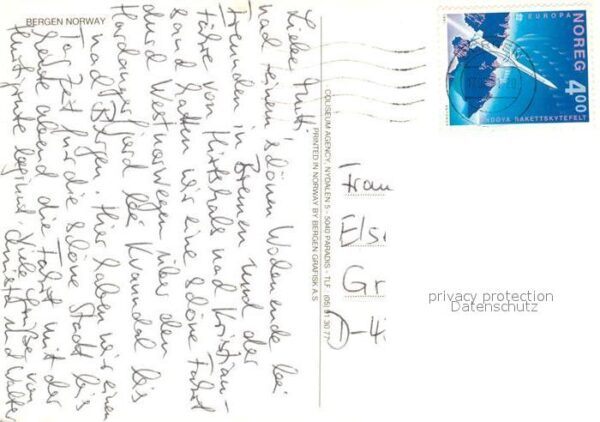 BERGEN NORWAY
Liebe Mutti,
nach einem schönen Wochenende bei
Freunden in Bremen und der
Fähre von Hirtshals nach Kristian-
sand hatten wir eine schöne Fahrt
durch Westnorwegen über den
Hardangerfjord bei Kvanndal bis
nach Bergen. Hier haben wir einen
Tag Zeit für die schöne Stadt bis
heute abend die Fahrt mit der
Hurtigrute beginnt. Viele Grüße von
und Walter
COLISEUM AGENCY, NYDALEN 5 - 5040 PARADIS - TLF. (05) 91 30 77
PRINTED IN NORWAY BY BERGEN GRAFISK A.S
EUROPA
NOREG
4.00
ANDØYA RAKETTSKYTEFELT
Frau
Els
Gr
D-4
privacy protection
Datenschutz